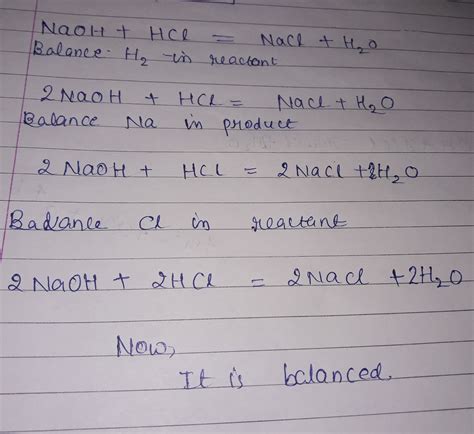 NaOH + HCl = NaCl + H₂O
Balance H₂ in reactant
2NaOH + HCl = NaCl + H₂O
Balance Na in product
2 NaOH + HCl = 2NaCl + 2H₂O
Balance Cl in reactant
2 NaOH + 2HCl = 2NaCl + 2H₂O
Now,
It is balanced.